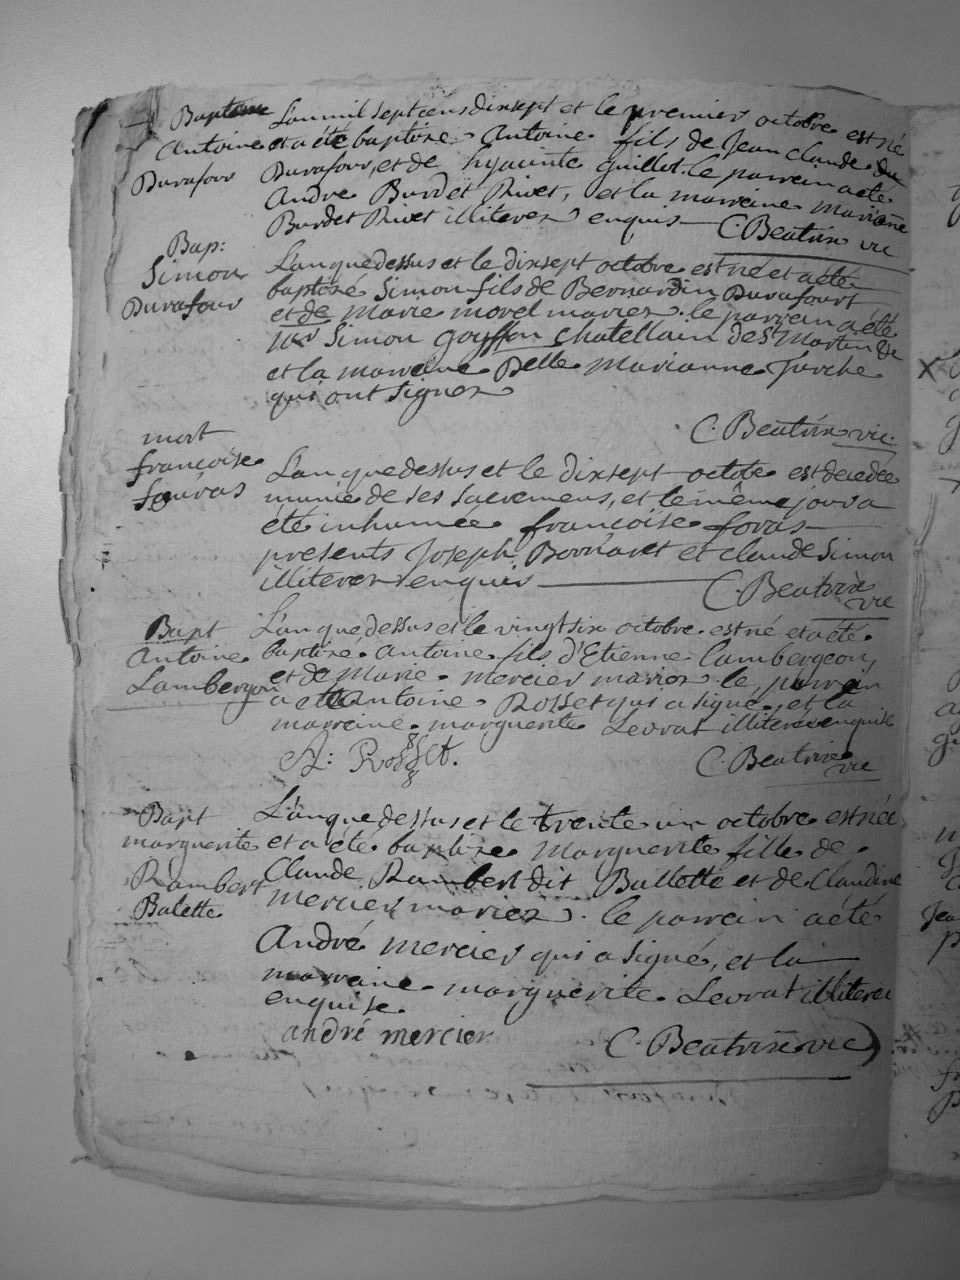 Baptême
Antoine
Durafour
L'an mil sept cens dixsept et le premier octobre est né
et a été baptize Antoine fils de Jean claude du
Durafour, et de hyacinte guillot. le parrain a eté
Andre Burdet Rivet, et la marraine marianne
Burdet Rivet illiterez enquis C. Beatrix vic
Bap:
Simon
Durafour
L'an que dessus et le dixsept octobre est né et a eté
baptize Simon fils de Bernardin Durafourt
et de Marie morel mariez. le parrain a été
mr Simon goyffon chatellain de St Martin de
et la marreine Delle marianne Jarche
qui ont signez
C. Beatrix vic.
mort
françoise
foras
L'an que dessus et le dixsept octobe est decedee
munie de ses sacremens, et le même jour a
été inhumée françoise foras
presents Joseph Bornaret et claude Simon
illiterez enquis C. Beatrix
vic
Bapt
Antoine
Lambergeon
L'an que dessus et le vingt six octobre est né et a été
baptize Antoine fils d'Etienne Lambergeon,
et de Marie mercier mariez. le parrain
a eté Antoine Rosset qui a signé, et la
marreine marguerite Levrat illiteree enquise
A: Rosset. C. Beatrix
vic
Bapt
marguerite
Rambert
Balette
L'an que dessus et le trente un octobre est née
et a été baptize Marguerite fille de
Claude Rambert dit Ballette et de Claudine
mercier mariez. le parrain a été
André mercier qui a signé, et la
marraine marguerite Levrat illiteree
enquise.
andré mercier C. Beatrix vic